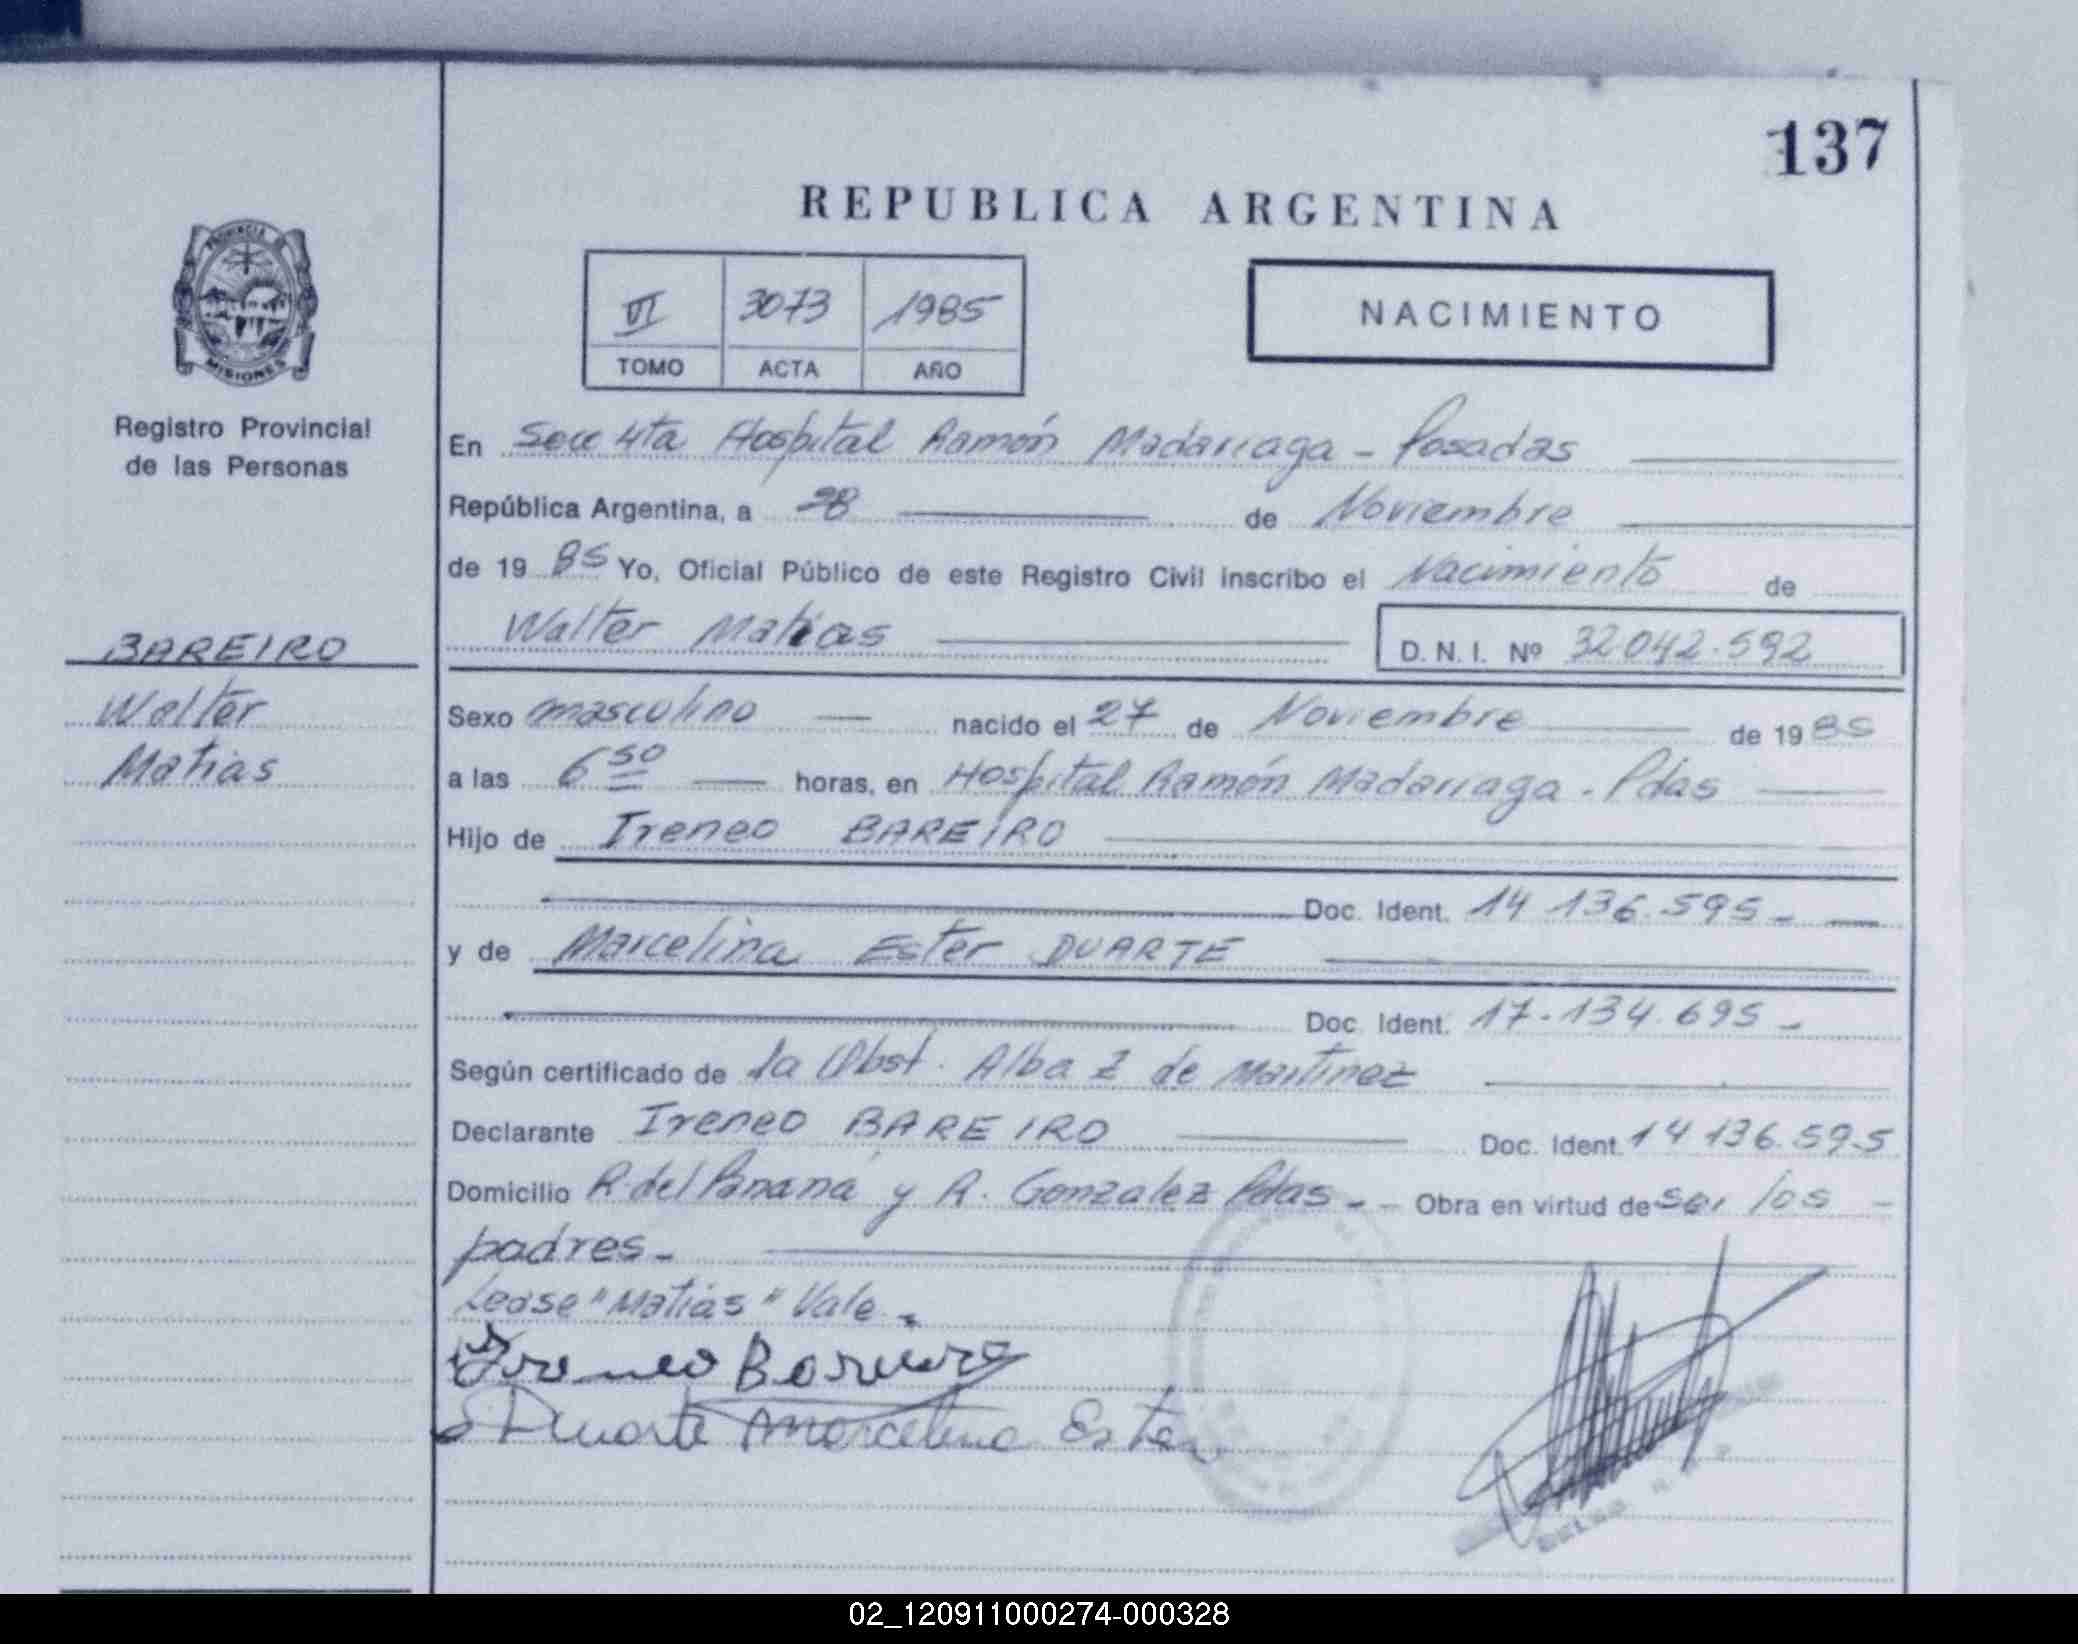 137
REPUBLICA ARGENTINA
PROVINCIA
MISIONES
Registro Provincial
de las Personas
VI 3073 1985
TOMO ACTA AÑO
NACIMIENTO
En Secc 4ta Hospital Ramón Madariaga - Posadas
República Argentina, a 28 de Noviembre
de 19 85 Yo, Oficial Público de este Registro Civil inscribo el Nacimiento de
Walter Matias
D. N. I. Nº 32.042.592
BAREIRO
Walter
Matias
Sexo masculino nacido el 27 de Noviembre de 19 85
a las 6 50 horas, en Hospital Ramón Madariaga - Pdas
Hijo de Ireneo BAREIRO
Doc. Ident. 14 136.595-
y de Marcelina Ester DUARTE
Doc. Ident. 17.134.695-
Según certificado de la Obst. Alba Z de Martinez
Declarante Ireneo BAREIRO Doc. Ident. 14 136.595
Domicilio R del Paraná y R. Gonzalez Pdas - Obra en virtud de ser los
padres-
Lease "Matias" Vale.
Ireneo Bareiro
Duarte Marcelina Ester
02_120911000274-000328